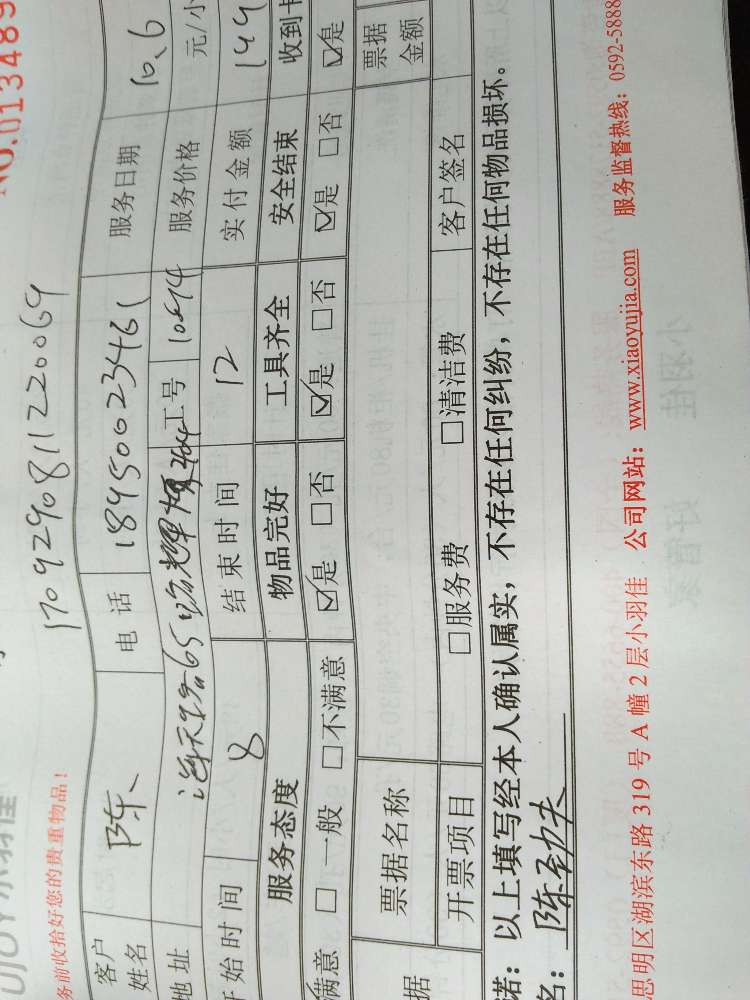 NO.013489
1709290811220069
务前收拾好您的贵重物品！
客户姓名 陈 电话 18950023461 服务日期 10、6
地址 工号 服务价格 元/小
开始时间 8 结束时间 12 实付金额 149
服务态度 物品完好 工具齐全 安全结束 收到卡
满意 □一般 □不满意 ☑是 □否 ☑是 □否 ☑是 □否 ☑是
据 票据名称 票据金额
开票项目 □服务费 □清洁费 客户签名
诺：以上填写经本人确认属实，不存在任何纠纷，不存在任何物品损坏。
名：陈劲夫
思明区湖滨东路 319 号 A 幢 2 层小羽佳 公司网站：www.xiaoyujia.com 服务监督热线：0592-5888